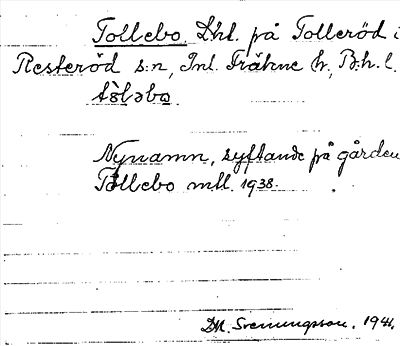 Tollebo. Lht. på Tolleröd i
Resteröd s:n, Inl. Fräkne h., B.h.l.
tòləbω
Nynamn, syftande på gården
Tollebo mtl. 1938.
D.H. Svenungsson. 1941.